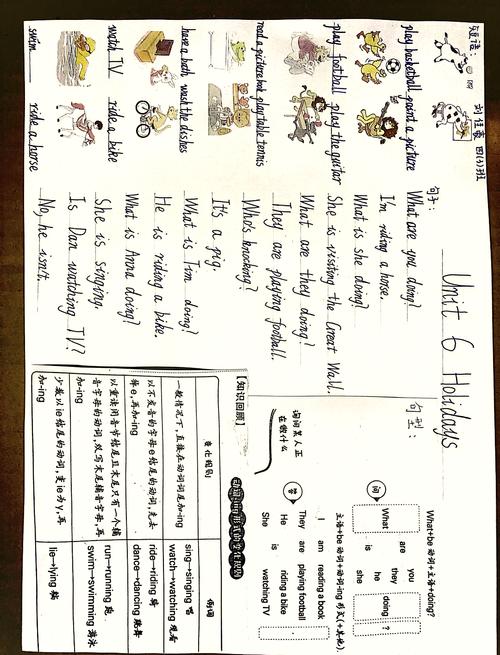 Unit 6 Holidays
短语：
四(3)班
play basketball paint a picture
play football play the guitar
read a picture book play table tennis
have a bath wash the dishes
watch TV ride a bike
swim ride a horse
句子：
What are you doing?
I'm riding a horse.
What is she doing?
She is visiting the Great Wall.
What are they doing?
They are playing football.
Who's knocking?
It's a pig.
What is Tim doing?
He is riding a bike.
What is Anna doing?
She is singing.
Is Dan watching TV?
No, he isn't.
句型：
询问某人正
在做什么
问
What+be 动词+主语+doing?
What are you doing ?
they
is he
she
答
主语+be 动词+动词-ing 形式(+其他).
I am reading a book .
They are playing football
He is riding a bike
She watching TV
【知识回顾】
动词-ing形式的变化规则
变化规则 例词
一般情况下，直接在动词词尾加-ing
sing→singing 唱
watch→watching 观看
以不发音的字母e结尾的动词，先去
掉e，再加-ing
ride→riding 骑
dance→dancing 跳舞
以重读闭音节结尾且末尾只有一个辅
音字母的动词，双写末尾辅音字母，再
加-ing
run→running 跑
swim→swimming 游泳
少数以ie结尾的动词，变ie为y，再
加-ing
lie→lying 躺